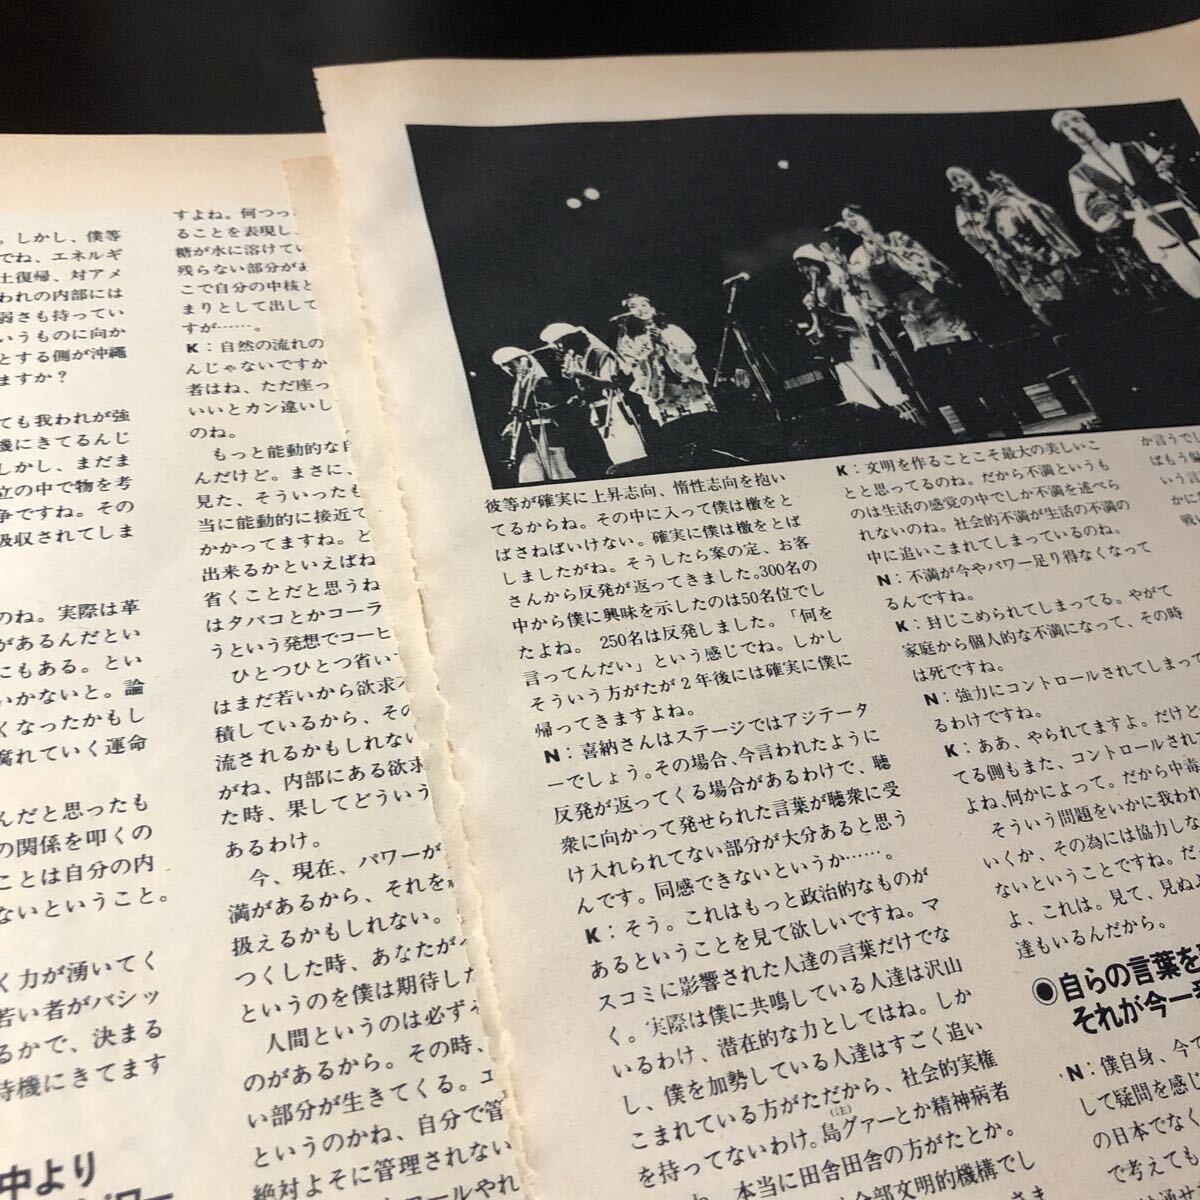 。しかし、僕等
でね、エネルギ
土復帰、対アメ
われの内部には
弱さも持ってい
いうものに向か
とする側が沖縄
ますか？
ても我われが強
機にきてるんじ
しかし、まだま
立の中で物を考
争ですね。その
吸収されてしま
のね。実際は革
があるんだとい
にもある。とい
いかないと。論
くなったかもし
腐れていく運命
んだと思ったも
の関係を叩くの
ことは自分の内
ないということ。
く力が湧いてく
若い者がバシッ
るかで、決まる
待機にきてます
中より
すよね。何つっ
ることを表現し、
糖が水に溶けてい
残らない部分があ
こで自分の中核と
まりとして出して
すが……。
K：自然の流れの
んじゃないですか
者はね、ただ座っ
いいとカン違いし
のね。
もっと能動的な自
んだけど。まさに、
見た、そういったも
当に能動的に接近て
かかってますね。と
出来るかといえばね
省くことだと思うね
はタバコとかコーラ
うという発想でコーヒ
ひとつひとつ省い
はまだ若いから欲求
積しているから、その
流されるかもしれない
がね、内部にある欲求
た時、果してどういう
あるわけ。
今、現在、パワーが
満があるから、それを
扱えるかもしれない。
つくした時、あなたが
というのを僕は期待した
人間というのは必ずそ
のがあるから。その時、
い部分が生きてくる。エ
というのかね、自分で管
絶対よそに管理されない
ロールやれ
彼等が確実に上昇志向、惰性志向を抱い
てるからね。その中に入って僕は檄をと
ばさねばいけない。確実に僕は檄をとば
しましたがね。そうしたら案の定、お客
さんから反発が返ってきました。300名の
中から僕に興味を示したのは50名位でし
たよね。 250名は反発しました。「何を
言ってんだい」という感じでね。しかし
そういう方がたが２年後には確実に僕に
帰ってきますよね。
N：喜納さんはステージではアジテータ
ーでしょう。その場合、今言われたように
反発が返ってくる場合があるわけで、聴
衆に向かって発せられた言葉が聴衆に受
け入れられてない部分が大分あると思う
んです。同感できないというか……。
K：そう。これはもっと政治的なものが
あるということを見て欲しいですね。マ
スコミに影響された人達の言葉だけでな
く。実際は僕に共鳴している人達は沢山
いるわけ、潜在的な力としてはね。しか
し、僕を加勢している人達はすごく追い
こまれている方がただから、社会的実権
を持ってないわけ。島グァーとか精神病者
(注)
本当に田舎田舎の方がたとか。
全部文明的機構でし
K：文明を作ることこそ最大の美しいこ
とと思ってるのね。だから不満というも
のは生活の感覚の中でしか不満を述べら
れないのね。社会的不満が生活の不満の
中に追いこまれてしまっているのね。
N：不満が今やパワー足り得なくなって
るんですね。
K：封じこめられてしまってる。やがて
家庭から個人的な不満になって、その時
は死ですね。
N：強力にコントロールされてしまって
るわけですね。
K：ああ、やられてますよ。だけど
てる側もまた、コントロールされて
よね、何かによって。だから中毒
そういう問題をいかに我われ
いくか、その為には協力しな
ないということですね。だ
よ、これは。見て、見ぬよ
達もいるんだから。
◉自らの言葉を
それが今一番
N：僕自身、今て
して疑問を感じ
の日本でなく
で考えても
か言うで
ばもう偏
いう言
かに
戦い